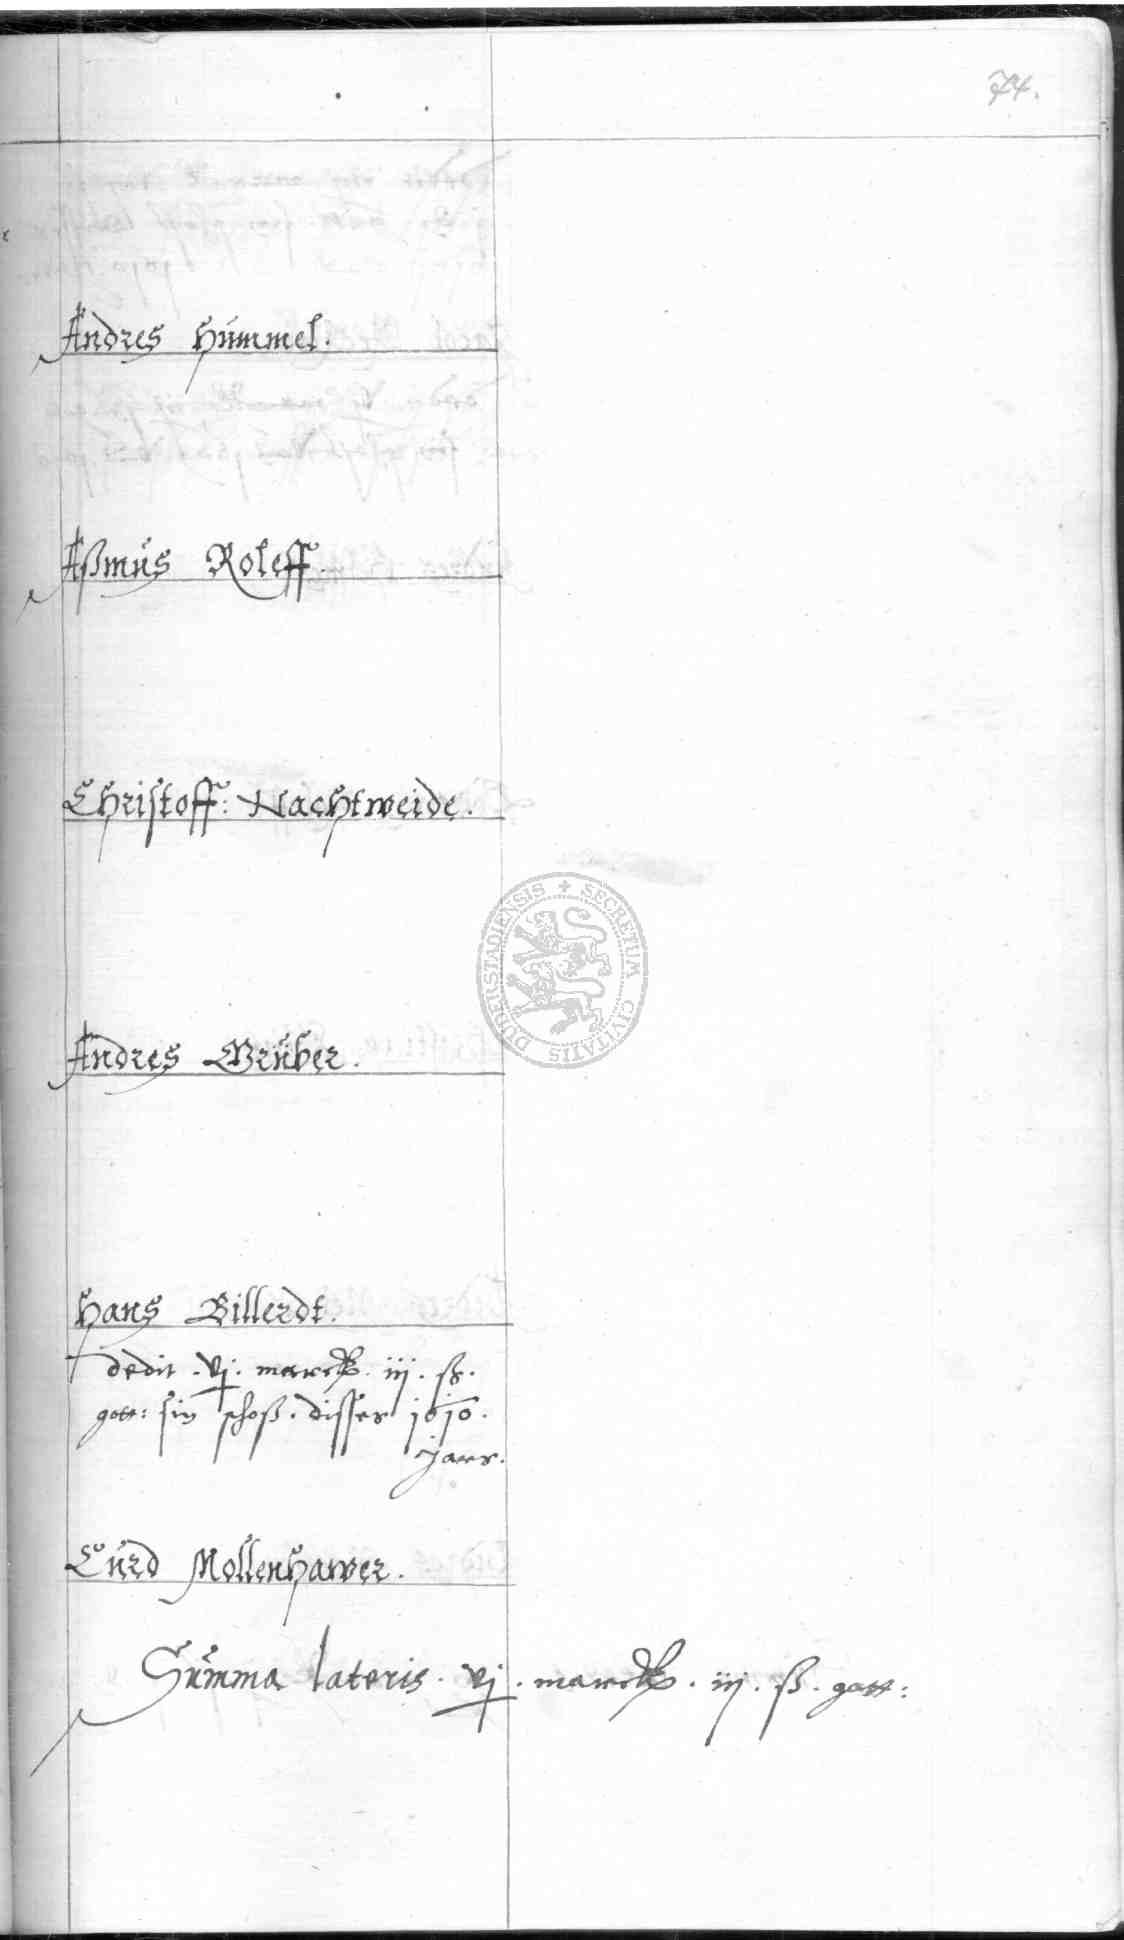 74.
Andres Hummel.
Aßmus Roleff.
Christoff: Nachtweide.
Andres Grüber.
SECRETUM CIVITATIS DUDERSTADIENSIS
Hans Billerdt.
dedit . vj . marck . iij . ß .
gott: sin schoß . disses 1610 .
jars.
Curd Mollenhawer.
Summa lateris . vj . marck . iij . ß . gott: